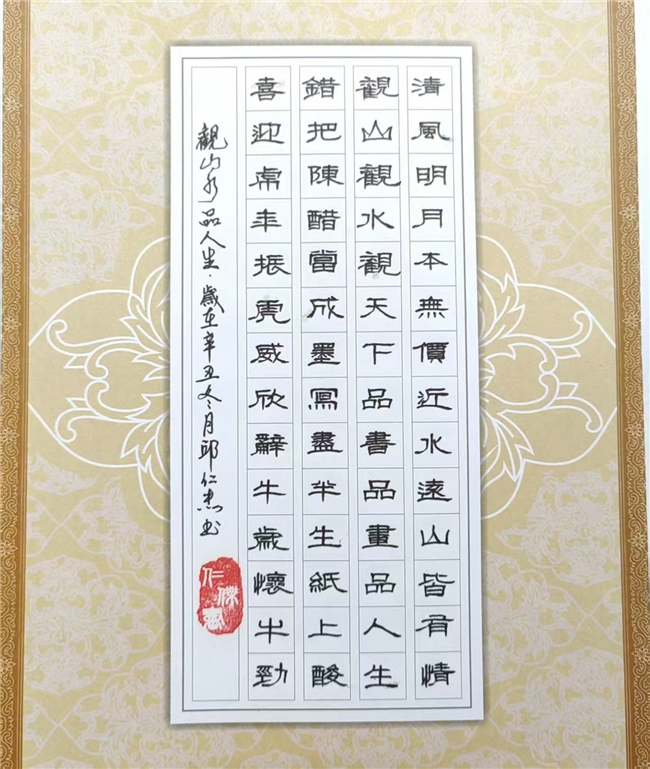 清風明月本無價近水遠山皆有情
觀山觀水觀天下品書品畫品人生
錯把陳醋當成墨寫盡半生紙上酸
喜迎虎年振虎威欣辭牛歲懷牛勁
觀山水品人生·歲在辛丑冬月邱仁杰书
仁傑